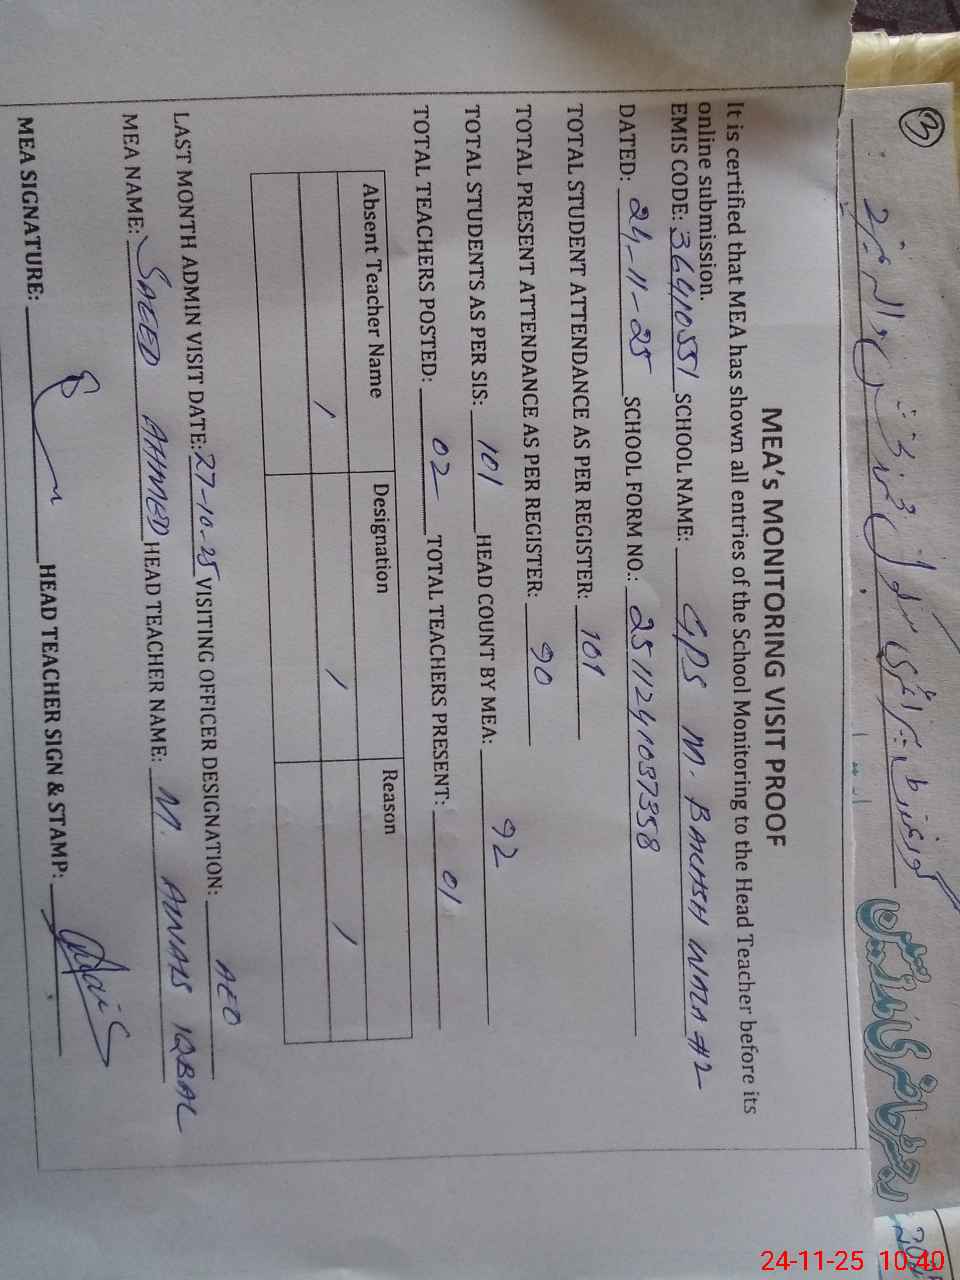 3
رجسٹر حاضری مدرسین
MEA's MONITORING VISIT PROOF
It is certified that MEA has shown all entries of the School Monitoring to the Head Teacher before its
online submission.
EMIS CODE: 36410551 SCHOOL NAME: GPS M. BAKHSH WALA #2
DATED: 24-11-25 SCHOOL FORM NO.: 2511241037358
TOTAL STUDENT ATTENDANCE AS PER REGISTER: 101
TOTAL PRESENT ATTENDANCE AS PER REGISTER: 90
TOTAL STUDENTS AS PER SIS: 101 HEAD COUNT BY MEA: 92
TOTAL TEACHERS POSTED: 02 TOTAL TEACHERS PRESENT: 01
Absent Teacher Name Designation Reason
/ / /
LAST MONTH ADMIN VISIT DATE: 27-10-25 VISITING OFFICER DESIGNATION: AEO
MEA NAME: SAEED AHMED HEAD TEACHER NAME: M. AWAIS IQBAL
MEA SIGNATURE: HEAD TEACHER SIGN & STAMP:
24-11-25 10:40